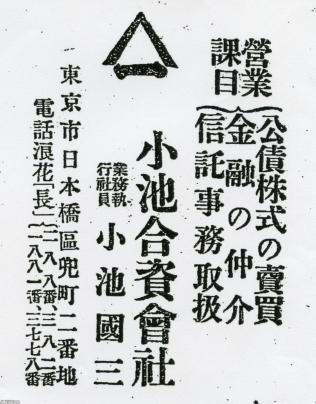 營業課目
公債株式の賣買
金融の仲介
信託事務取扱
小池合資會社
業務執行社員
小池國三
東京市日本橋區兜町二番地
電話浪花「長」
一八八番、三八二番
一八八一番、三七七八番